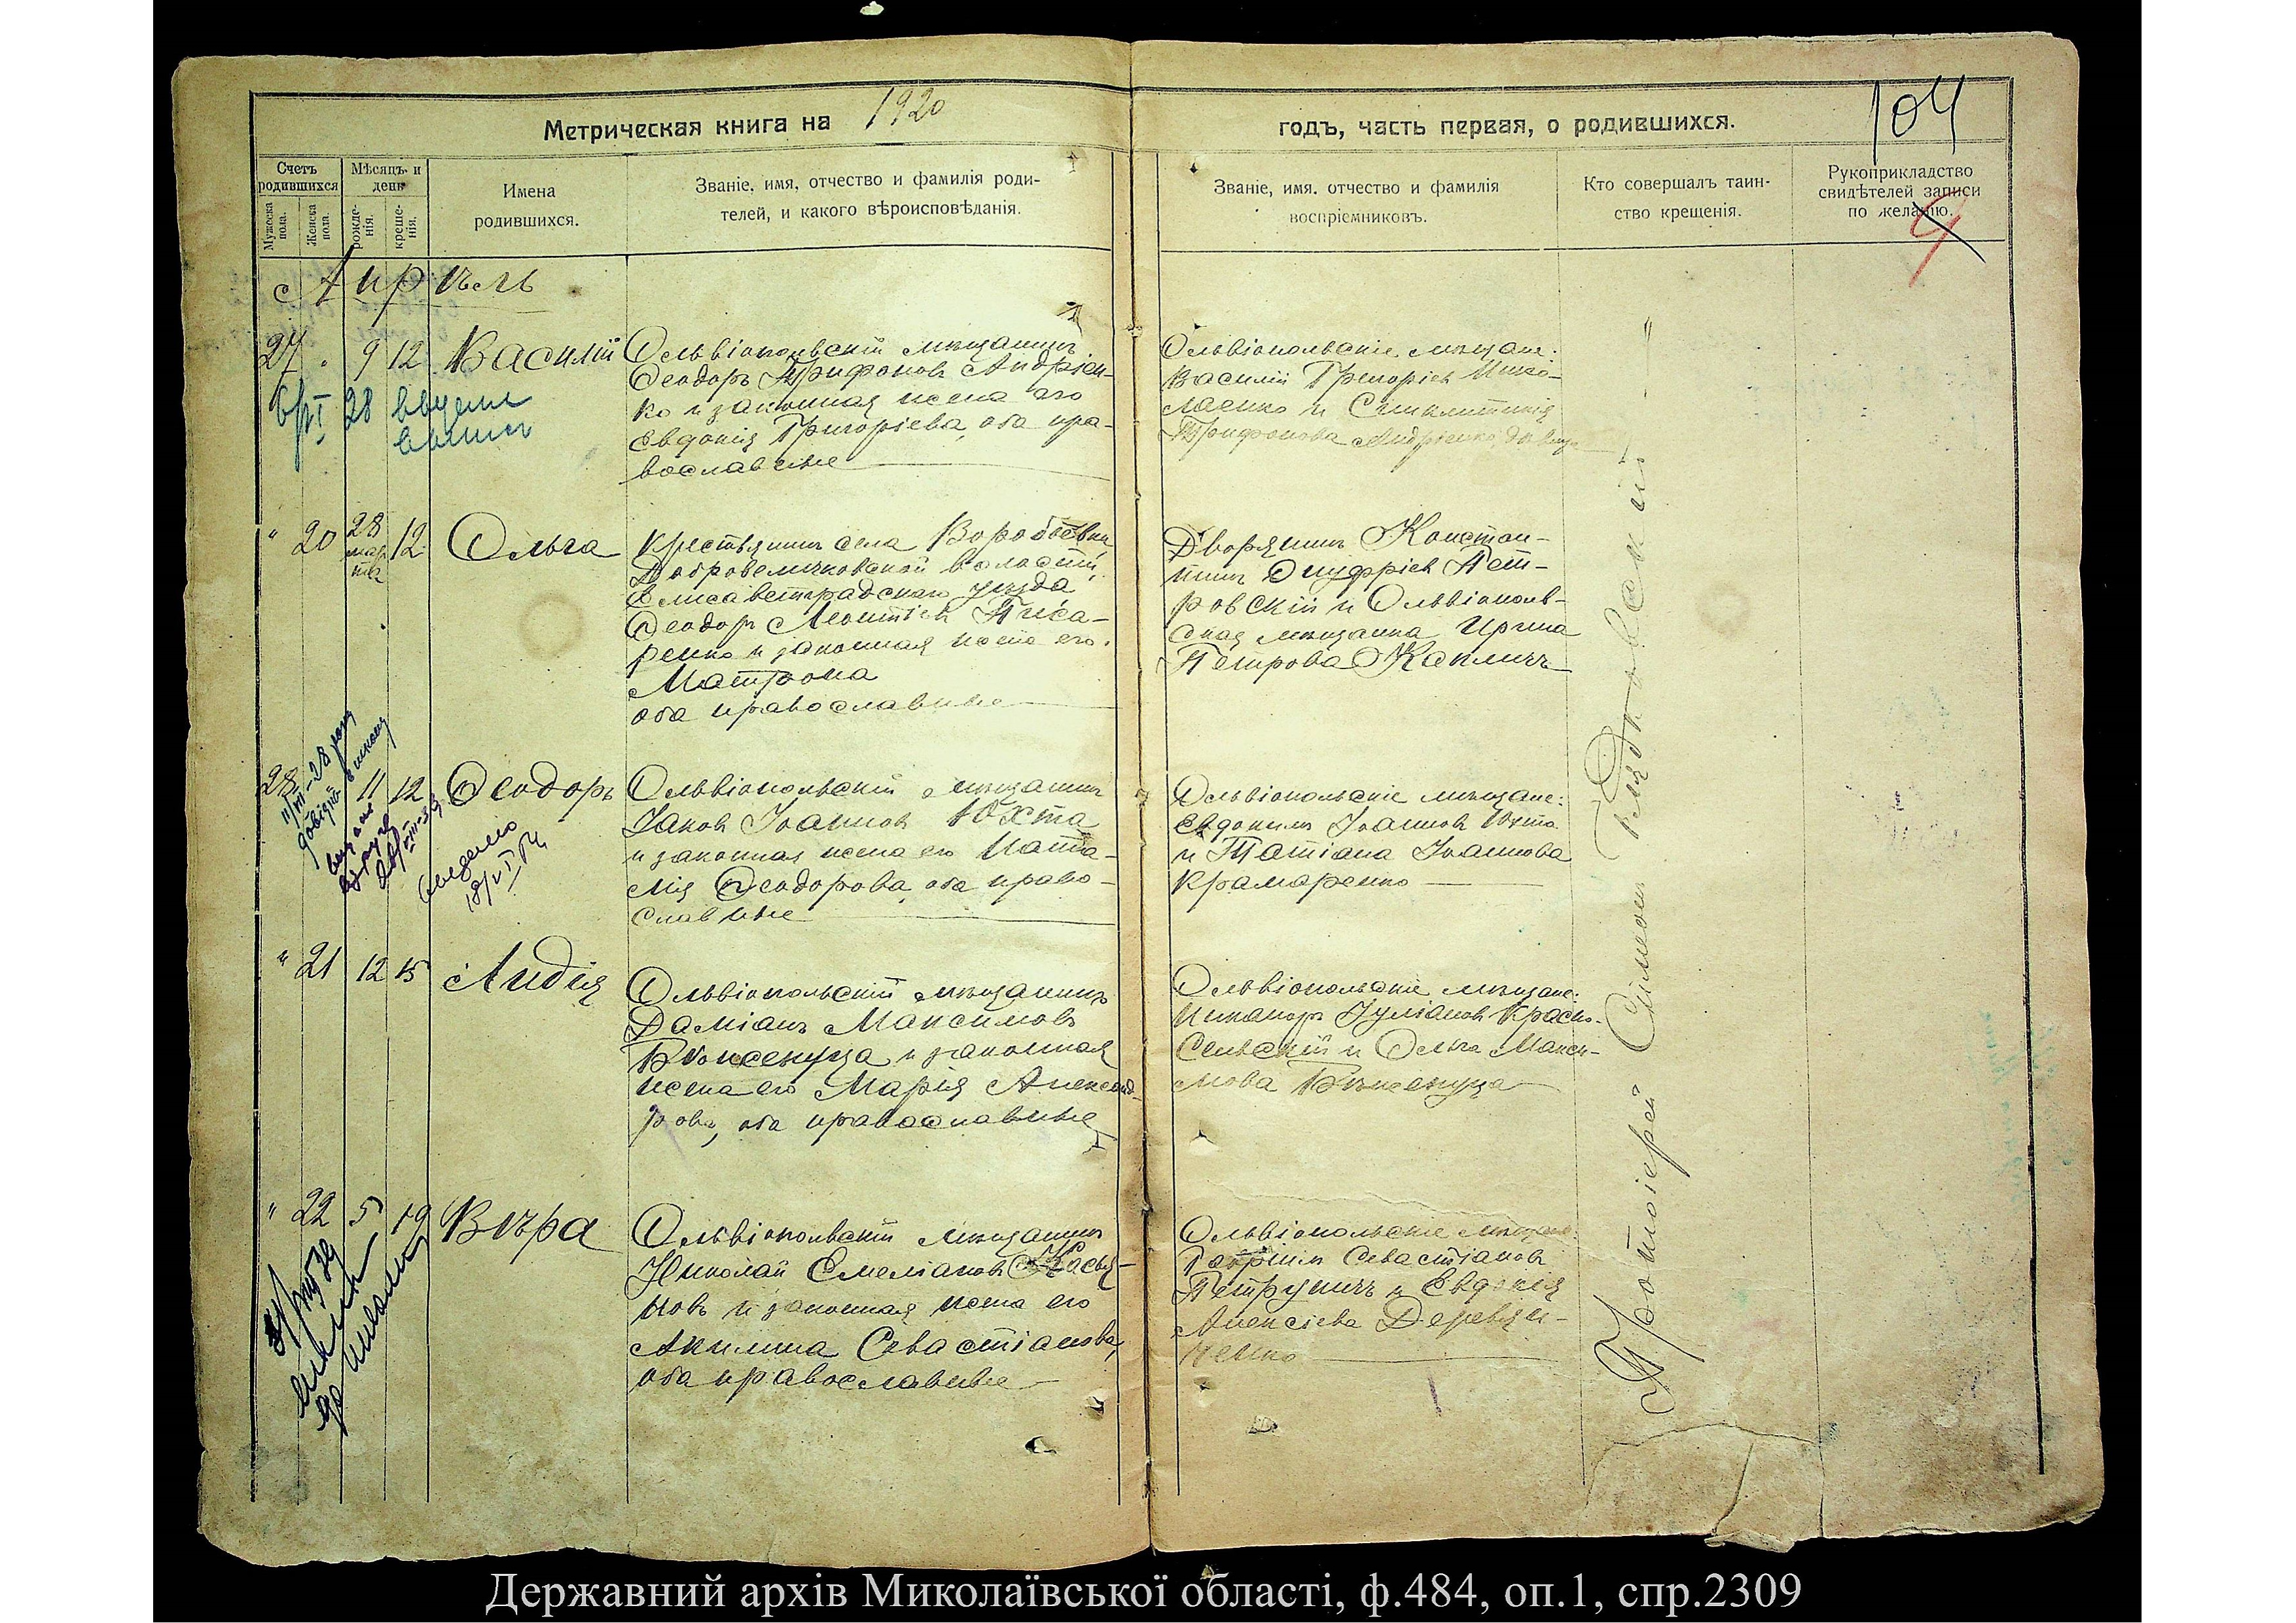 Метрическая книга на 1920
годъ, часть первая, о родившихся.
104
Счетъ родившихся
Мужеска пола.
Женска пола.
Мѣсяцъ и день
рожде-нія.
креще-нія.
Имена
родившихся.
Званіе, имя, отчество и фамилія роди-
телей, и какого вѣроисповѣданія.
Званіе, имя, отчество и фамилія
воспріемниковъ.
Кто совершалъ таин-
ство крещенія.
Рукоприкладство
свидѣтелей записи
по желанію.
Апрѣль
27 " 9 12 Василій
Ольвіопольскій мѣщанинъ
Ѳеодоръ Трифоновъ Андріен-
ко и законная жена его
Евдокія Григоріева, оба пра-
вославные
Ольвіопольскіе мѣщане:
Василій Григоріевъ Нико-
лаенко и Синклитикія
Трифонова Андріенко
28
" 20 28 мар та 12 Ольга
Крестьянинъ села Воробьевки
Добровеличковской волости,
Елисаветградскаго уѣзда
Ѳеодоръ Леонтіевъ Писа-
ренко и законная жена его
Матрона
оба православные
Дворянинъ Констан-
тинъ Онуфріевъ Пет-
ровскій и Ольвіополь-
ская мѣщанка Ирина
Петрова Капличъ
28 " 11 12 Ѳеодоръ
Ольвіопольскій мѣщанинъ
Іаковъ Іоанновъ Юхта
и законная жена его Ната-
лія Ѳеодорова, оба право-
славные
Ольвіопольскіе мѣщане:
Евдокимъ Іоанновъ Юхта
и Татіана Іоаннова
Крамаренко
" 21 12 15 Лидія
Ольвіопольскій мѣщанинъ
Даміанъ Максимовъ
Бѣженуца и законная
жена его Марія Александ-
рова, оба православные
Ольвіопольскіе мѣщане:
Никаноръ Іуліановъ Красно-
сельскій и Ольга Макси-
мова Бѣженуца
" 22 5 19 Вѣра
Ольвіопольскій мѣщанинъ
Николай Емеліановъ Касья-
новъ и законная жена его
Акилина Севастіанова,
оба православные
Ольвіопольскіе мѣщане:
Севастіановъ
Петруничъ и Евдокія
Алексіева Деревян-
ченко
Протоіерей Симеон
Державний архів Миколаївської області, ф.484, оп.1, спр.2309